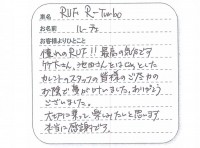 車名 RUF R-Turbo
お名前 ルーチェ
お客様よりひとこと
憧れのRUF!! 最高の気分です
竹下さん、池田さんをはじめとした
カレントのスタッフの皆様のご尽力の
お陰で夢が叶いました。ありがとう
ございました。
大切に乗って楽しみたいと思います
本当に感謝です。